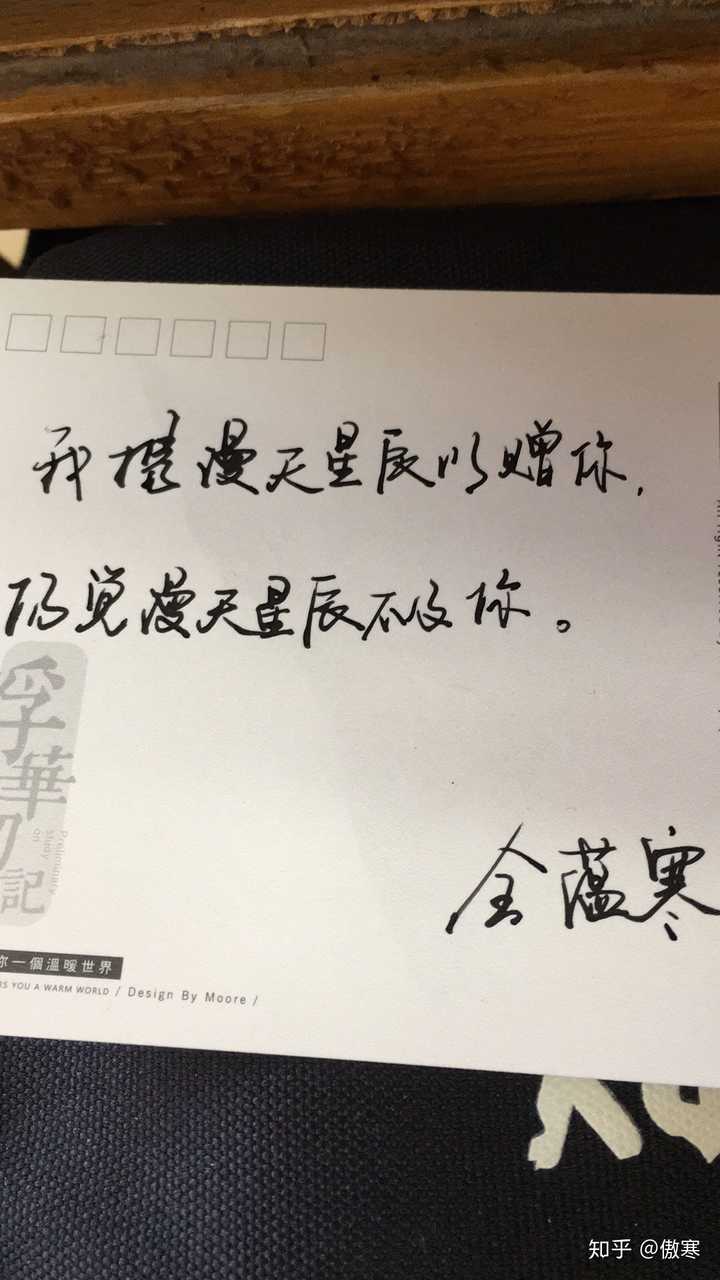 我携漫天星辰以赠你，
仍觉漫天星辰不及你。
浮華初記
Preliminary
study
on
全蕴寒
你一個溫暖世界
RS YOU A WARM WORLD / Design By Moore /
知乎 @傲寒